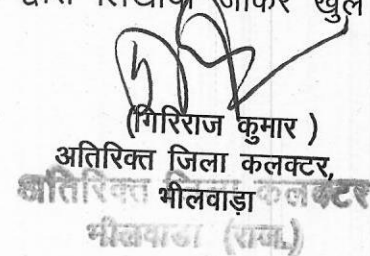 जाकर खुले
(गिरिराज कुमार )
अतिरिक्त जिला कलक्टर,
भीलवाड़ा
अतिरिक्त जिला कलक्टर
भीलवाडा (राज.)